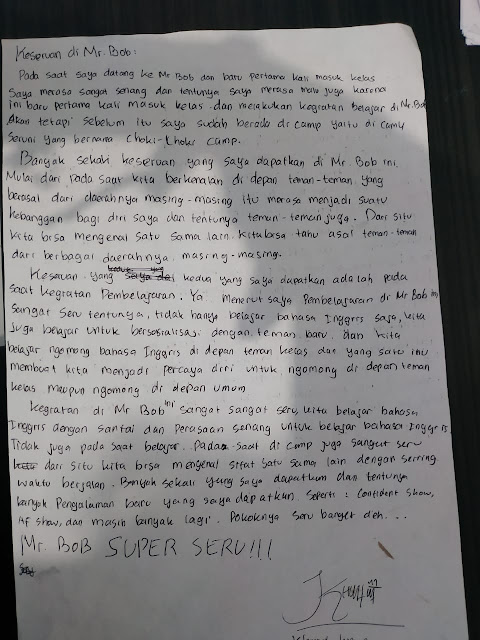 Keseruan di Mr. Bob :
Pada saat saya datang ke Mr Bob dan baru pertama kali masuk kelas
Saya merasa sangat senang dan tentunya saya merasa malu juga karena
ini baru pertama kali masuk kelas dan melakukan kegiatan belajar di Mr. Bob
Akan tetapi sebelum itu saya sudah berada di camp yaitu di Camp
Seruni yang bernama Choki-Choki Camp.
Banyak sekali keseruan yang saya dapatkan di Mr. Bob ini.
Mulai dari pada saat kita berkenalan di depan teman-teman yang
berasal dari daerahnya masing-masing itu merasa menjadi suatu
kebanggan bagi diri saya dan tentunya teman-teman juga. Dari situ
kita bisa mengenal satu sama lain. kita bisa tahu asal teman-teman
dari berbagai daerahnya masing-masing.
Keseruan yang kedua yang saya dapatkan adalah pada
saat kegiatan Pembelajaran. Ya menurut saya Pembelajaran di Mr Bob ini
sangat seru tentunya, tidak hanya belajar bahasa Inggris saja, kita
juga belajar untuk bersosialisasi dengan teman baru, dan kita
belajar ngomong bahasa Inggris di depan teman kelas dan yang satu itu
membuat kita menjadi percaya diri untuk ngomong di depan teman
kelas maupun ngomong di depan umum
Kegiatan di Mr Bob ini sangat sangat seru, kita belajar bahasa
Inggris dengan santai dan perasaan senang untuk belajar bahasa Inggris.
Tidak juga pada saat belajar. Pada saat di camp juga sangat seru
dari situ kita bisa mengenal sifat satu sama lain dengan seiring
waktu berjalan. Banyak sekali yang saya dapatkan dan tentunya
banyak Pengalaman baru yang saya dapatkan. Seperti : Confident Show,
AF show, dan masih banyak lagi. Pokoknya seru banget deh...
Mr. BOB SUPER SERU!!!